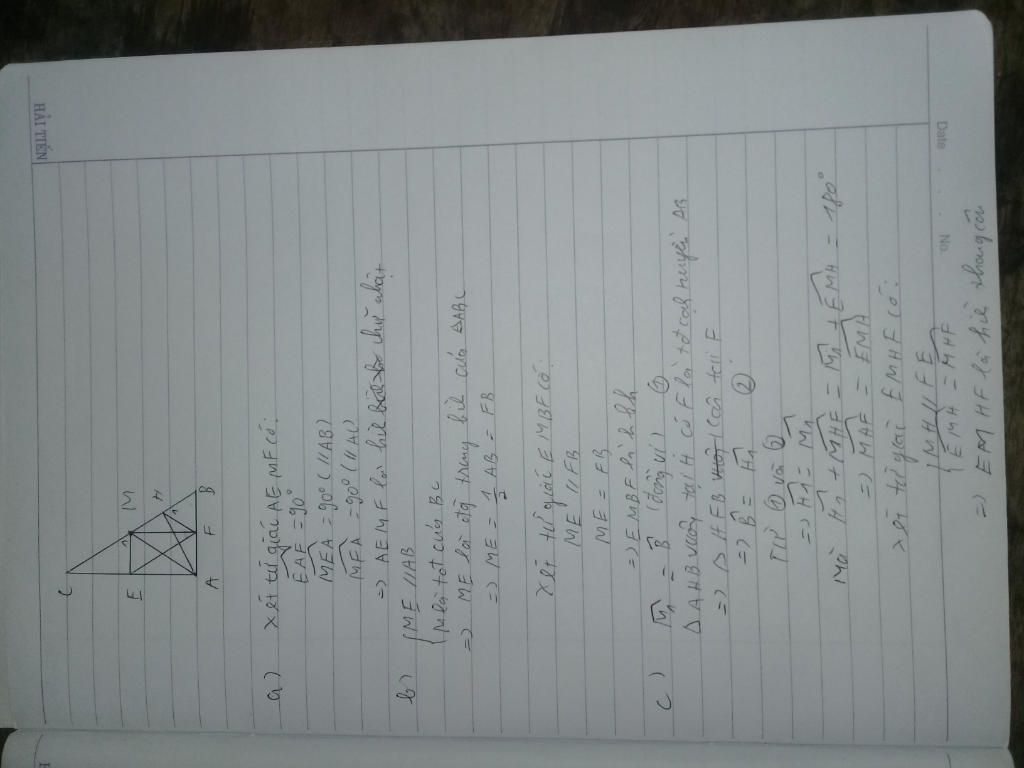 HẢI TIẾN
Date
No.
C
E
M
H
1
1
A
F
B
a) xét tứ giác AEMF có:
EAF = 90°
MEA = 90° (//AB)
MFA = 90° (//AC)
=> AEMF là hình chữ nhật
b) { ME//AB
M là tđ của BC
=> ME là đg trung bình của ΔABC
=> ME = 1/2 AB = FB
xét tứ giác EMBF có:
ME // FB
ME = FB
=> EMBF là hbh
c) M1 = B (đồng vị) ①
ΔAHB vuông tại H có F là tđ cạnh huyền AB
=> Δ HFB cân tại F
=> B = H1 ②
Từ ① và ②
=> H1 = M1
Mà H1 + MHF = M1 + EMH = 180°
=> MHF = EMH
xét tứ giác EMHF có:
{ MH // FE
EMH = MHF
=> EMHF là hình thang cân